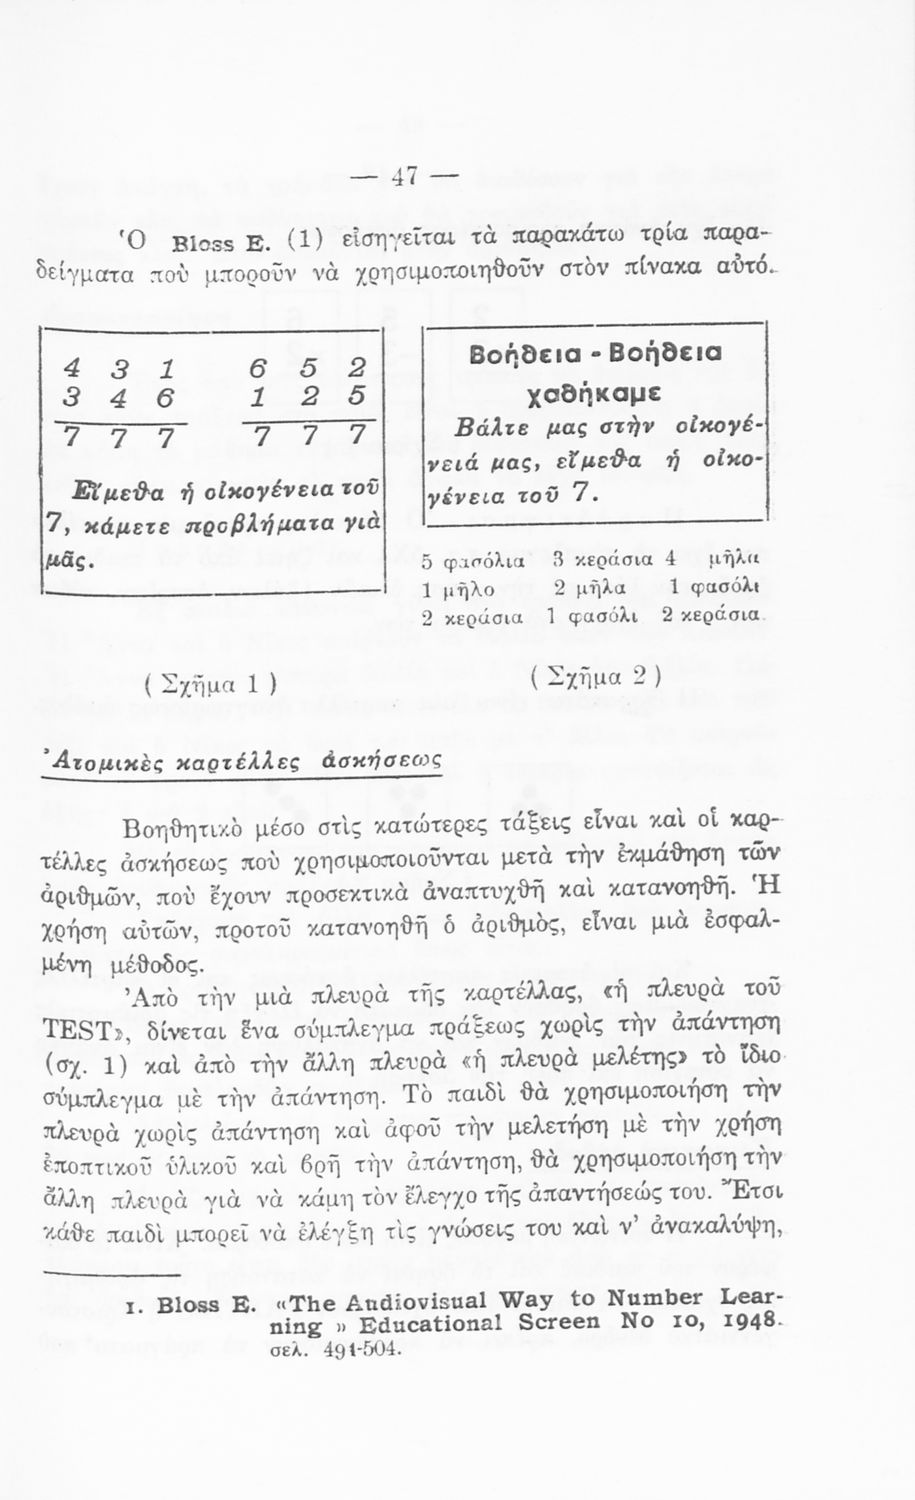 — 47 —
Ὁ Bloss E. (1) εἰσηγεῖται τὰ παρακάτω τρία παρα-
δείγματα ποὺ μποροῦν νὰ χρησιμοποιηθοῦν στὸν πίνακα αὐτό.
4 3 1 6 5 2
3 4 6 1 2 5
7 7 7 7 7 7
Εἴμεθα ἡ οἰκογένεια τοῦ
7, κάμετε προβλήματα γιὰ
μᾶς.
Βοήθεια - Βοήθεια
χαθήκαμε
Βάλτε μας στὴν οἰκογέ-
νειά μας, εἴμεθα ἡ οἰκο-
γένεια τοῦ 7.
5 φασόλια 3 κεράσια 4 μῆλα
1 μῆλο 2 μῆλα 1 φασόλι
2 κεράσια 1 φασόλι 2 κεράσια
( Σχῆμα 1 )
( Σχῆμα 2 )
Ἀτομικὲς καρτέλλες ἀσκήσεως
Βοηθητικὸ μέσο στὶς κατώτερες τάξεις εἶναι καὶ οἱ καρ-
τέλλες ἀσκήσεως ποὺ χρησιμοποιοῦνται μετὰ τὴν ἐκμάθηση τῶν
ἀριθμῶν, ποὺ ἔχουν προσεκτικὰ ἀναπτυχθῆ καὶ κατανοηθῆ. Ἡ
χρήση αὐτῶν, προτοῦ κατανοηθῆ ὁ ἀριθμὸς, εἶναι μιὰ ἐσφαλ-
μένη μέθοδος.
Ἀπὸ τὴν μιὰ πλευρὰ τῆς καρτέλλας, «ἡ πλευρὰ τοῦ
TEST», δίνεται ἕνα σύμπλεγμα πράξεως χωρὶς τὴν ἀπάντηση
(σχ. 1) καὶ ἀπὸ τὴν ἄλλη πλευρὰ «ἡ πλευρὰ μελέτης» τὸ ἴδιο
σύμπλεγμα μὲ τὴν ἀπάντηση. Τὸ παιδὶ θὰ χρησιμοποιήση τὴν
πλευρὰ χωρὶς ἀπάντηση καὶ ἀφοῦ τὴν μελετήση μὲ τὴν χρήση
ἐποπτικοῦ ὑλικοῦ καὶ βρῆ τὴν ἀπάντηση, θὰ χρησιμοποιήση τὴν
ἄλλη πλευρὰ γιὰ νὰ κάμη τὸν ἔλεγχο τῆς ἀπαντήσεώς του. Ἔτσι
κάθε παιδὶ μπορεῖ νὰ ἐλέγξη τὶς γνώσεις του καὶ ν' ἀνακαλύψη,
1. Bloss E. «The Audiovisual Way to Number Lear-
ning » Educational Screen No 10, 1948.
σελ. 491-504.